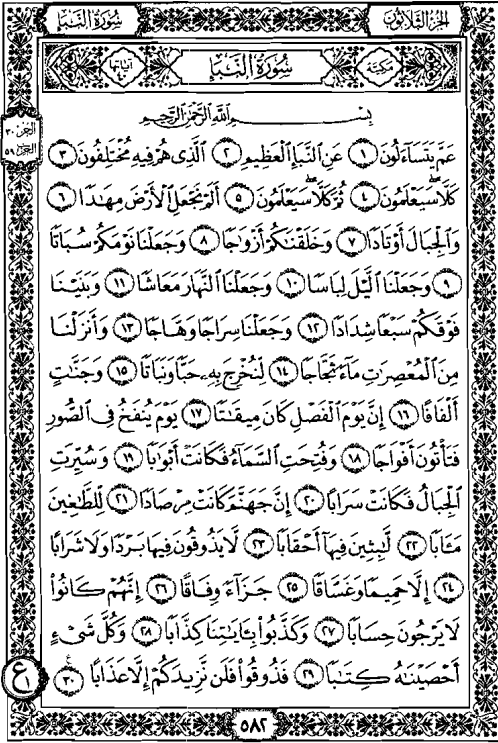 سُورَةُ النَّبَإِ
الجُزْءُ الثَّلَاثُونَ
آيَاتُهَا ٤٠
سُورَةُ النَّبَإِ
مَكِّيَّة
الجزء ٣٠
الحزب ٥٩
بِسْمِ اللَّهِ الرَّحْمَٰنِ الرَّحِيمِ
عَمَّ يَتَسَآءَلُونَ ١ عَنِ ٱلنَّبَإِ ٱلْعَظِيمِ ٢ ٱلَّذِى هُمْ فِيهِ مُخْتَلِفُونَ ٣
كَلَّا سَيَعْلَمُونَ ٤ ثُمَّ كَلَّا سَيَعْلَمُونَ ٥ أَلَمْ نَجْعَلِ ٱلْأَرْضَ مِهَٰدًا ٦
وَٱلْجِبَالَ أَوْتَادًا ٧ وَخَلَقْنَٰكُمْ أَزْوَٰجًا ٨ وَجَعَلْنَا نَوْمَكُمْ سُبَاتًا
٩ وَجَعَلْنَا ٱلَّيْلَ لِبَاسًا ١٠ وَجَعَلْنَا ٱلنَّهَارَ مَعَاشًا ١١ وَبَنَيْنَا
فَوْقَكُمْ سَبْعًا شِدَادًا ١٢ وَجَعَلْنَا سِرَاجًا وَهَّاجًا ١٣ وَأَنزَلْنَا
مِنَ ٱلْمُعْصِرَٰتِ مَآءً ثَجَّاجًا ١٤ لِّنُخْرِجَ بِهِۦ حَبًّا وَنَبَاتًا ١٥ وَجَنَّٰتٍ
أَلْفَافًا ١٦ إِنَّ يَوْمَ ٱلْفَصْلِ كَانَ مِيقَٰتًا ١٧ يَوْمَ يُنفَخُ فِى ٱلصُّورِ
فَتَأْتُونَ أَفْوَاجًا ١٨ وَفُتِحَتِ ٱلسَّمَآءُ فَكَانَتْ أَبْوَٰبًا ١٩ وَسُيِّرَتِ
ٱلْجِبَالُ فَكَانَتْ سَرَابًا ٢٠ إِنَّ جَهَنَّمَ كَانَتْ مِرْصَادًا ٢١ لِّلطَّٰغِينَ
مَـَٔابًا ٢٢ لَّٰبِثِينَ فِيهَآ أَحْقَابًا ٢٣ لَّا يَذُوقُونَ فِيهَا بَرْدًا وَلَا شَرَابًا
٢٤ إِلَّا حَمِيمًا وَغَسَّاقًا ٢٥ جَزَآءً وِفَاقًا ٢٦ إِنَّهُمْ كَانُوا۟
لَا يَرْجُونَ حِسَابًا ٢٧ وَكَذَّبُوا۟ بِـَٔايَٰتِنَا كِذَّابًا ٢٨ وَكُلَّ شَىْءٍ
أَحْصَيْنَٰهُ كِتَٰبًا ٢٩ فَذُوقُوا۟ فَلَن نَّزِيدَكُمْ إِلَّا عَذَابًا ٣٠
ع
١
٥٨٢